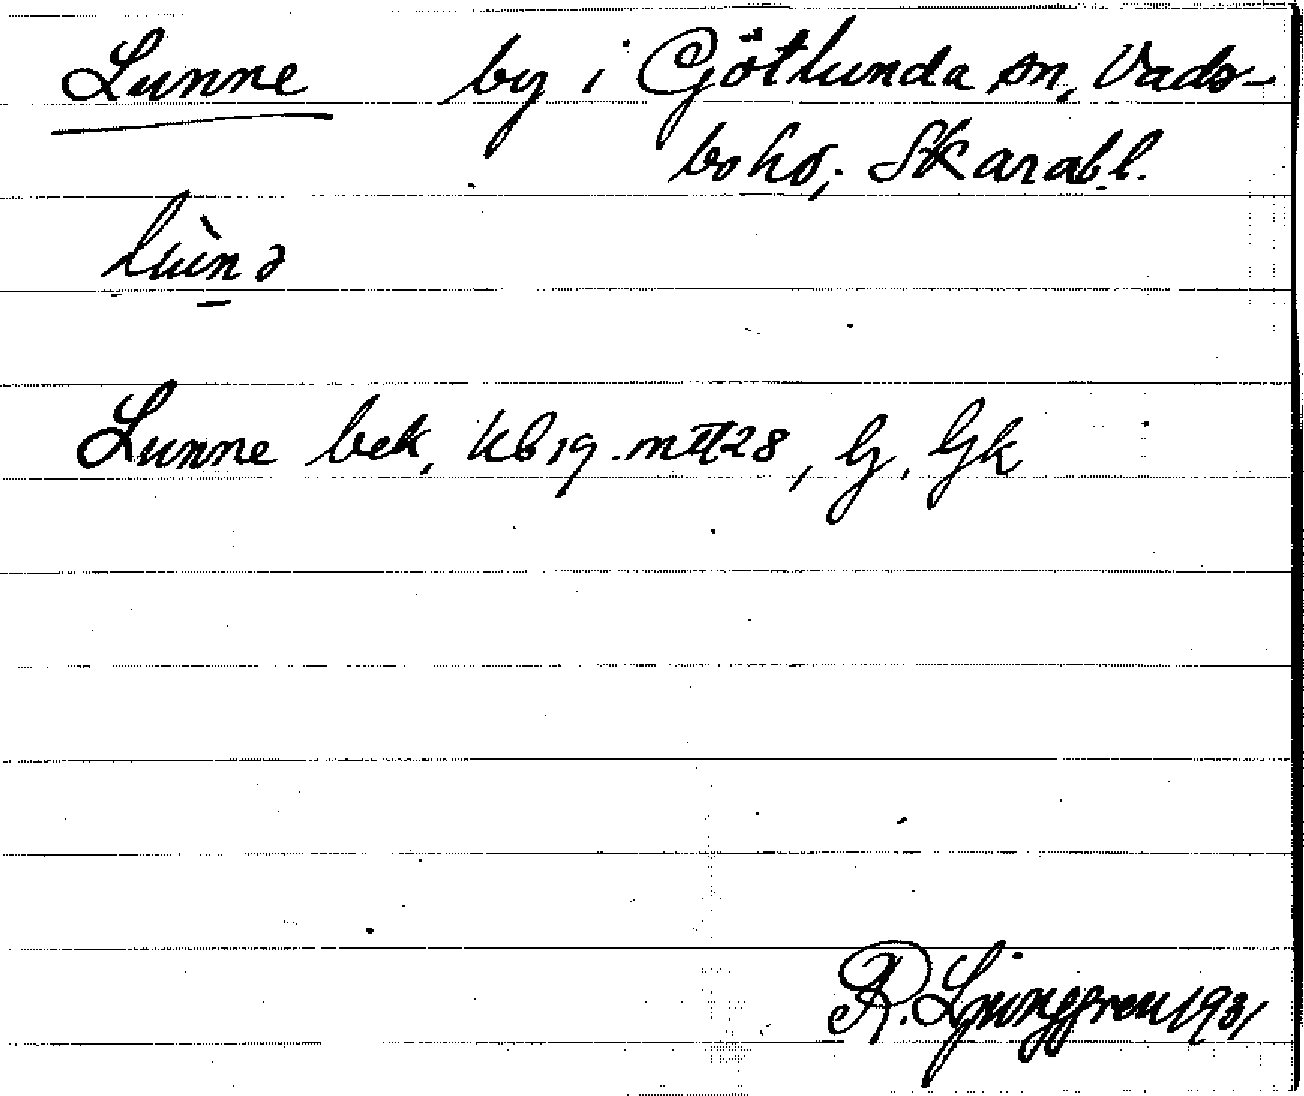 Lunne by i Götlunda sn, Vads-
bo hd, Skarab.l.
Lunne bek. kb 19. mtl 28, G, Gk
R. Ljunggren 1931